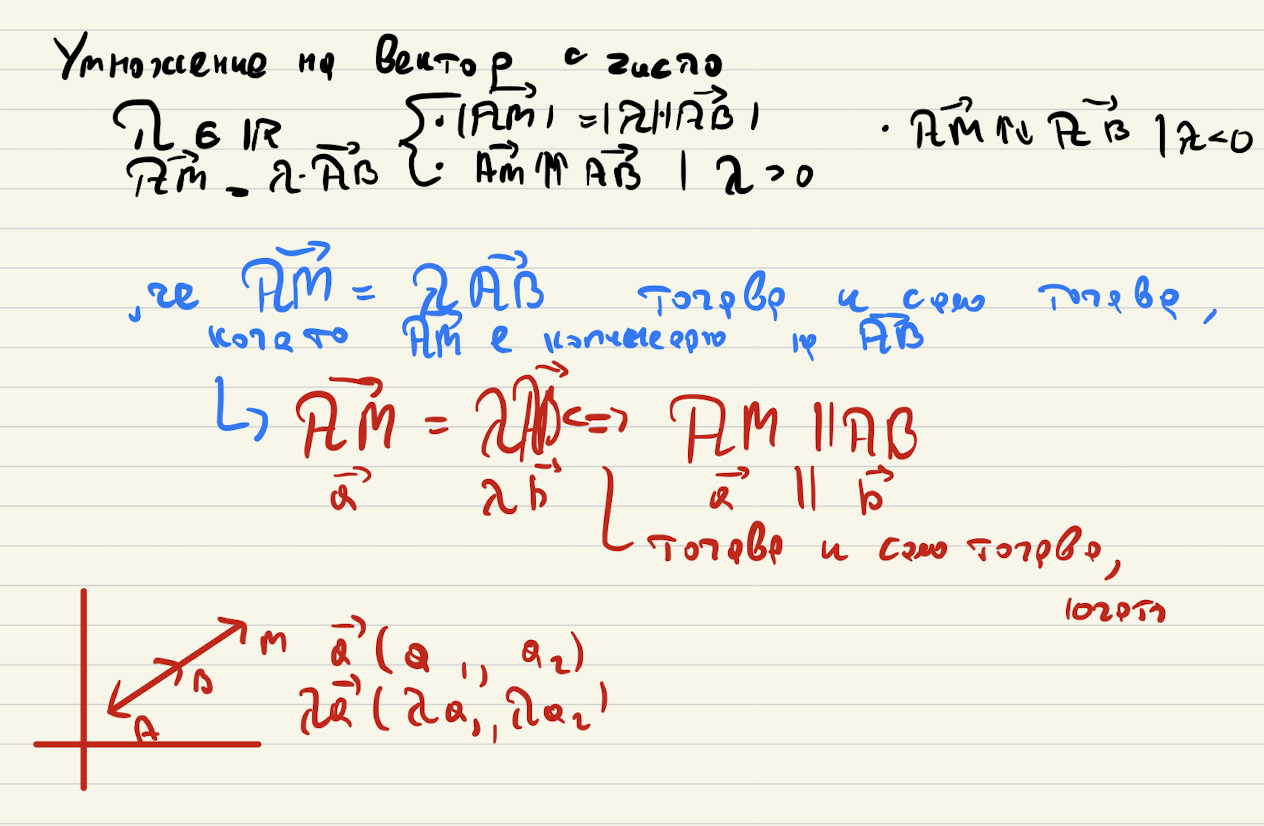 Умножение на вектор с число
λ ∈ ℝ { · |AM→| = |λ||AB→| · AM→ ↑↓ AB→ | λ < 0
AM→ = λ·AB→ · AM→ ↑↑ AB→ | λ > 0
, че AM→ = λ AB→ тогава и само тогава,
когато AM→ е колинеарно на AB→
↳ AM→ = λAB→ <=> AM || AB
a→ λ b→ a→ || b→
тогава и само тогава,
M a→ (a₁, a₂)
B
λa→ (λa₁, λa₂)
A